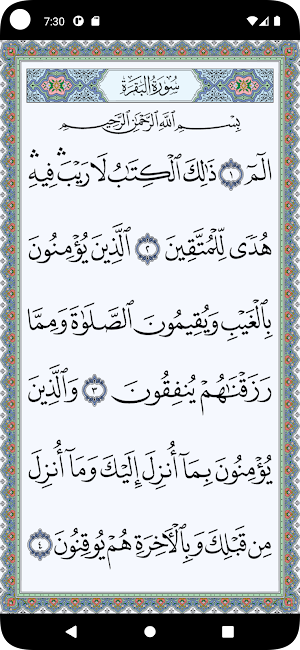 7:30
سُورَةُ البَقَرَةِ
بِسْمِ ٱللَّهِ ٱلرَّحْمَٰنِ ٱلرَّحِيمِ
الٓمٓ ١ ذَٰلِكَ ٱلْكِتَٰبُ لَا رَيْبَ ۛ فِيهِ ۛ
هُدًى لِّلْمُتَّقِينَ ٢ ٱلَّذِينَ يُؤْمِنُونَ
بِٱلْغَيْبِ وَيُقِيمُونَ ٱلصَّلَوٰةَ وَمِمَّا
رَزَقْنَٰهُمْ يُنفِقُونَ ٣ وَٱلَّذِينَ
يُؤْمِنُونَ بِمَآ أُنزِلَ إِلَيْكَ وَمَآ أُنزِلَ
مِن قَبْلِكَ وَبِٱلْأَخِرَةِ هُمْ يُوقِنُونَ ٤